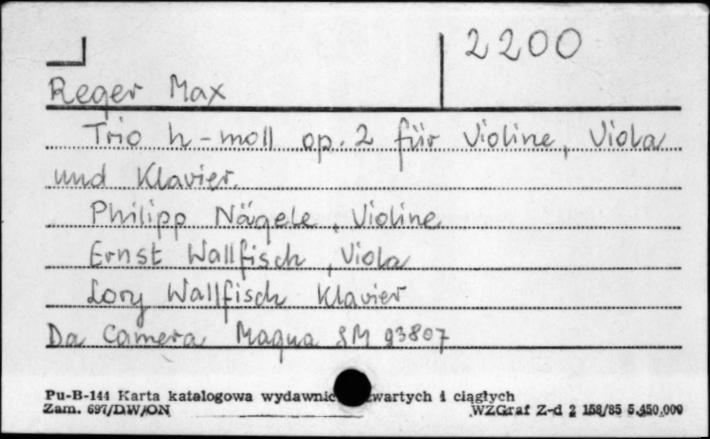 2200
Reger Max
Trio h-moll op. 2 für Violine, Viola
und Klavier.
Philipp Nägele, Violine
Ernst Wallfisch, Viola
Lory Wallfisch Klavier
Da Camera Magna SM 93807
Pu-B-144 Karta katalogowa wydawnic wartych i ciągłych
Zam. 697/DW/ON WZGraf Z-d 2 158/85 5.450.000